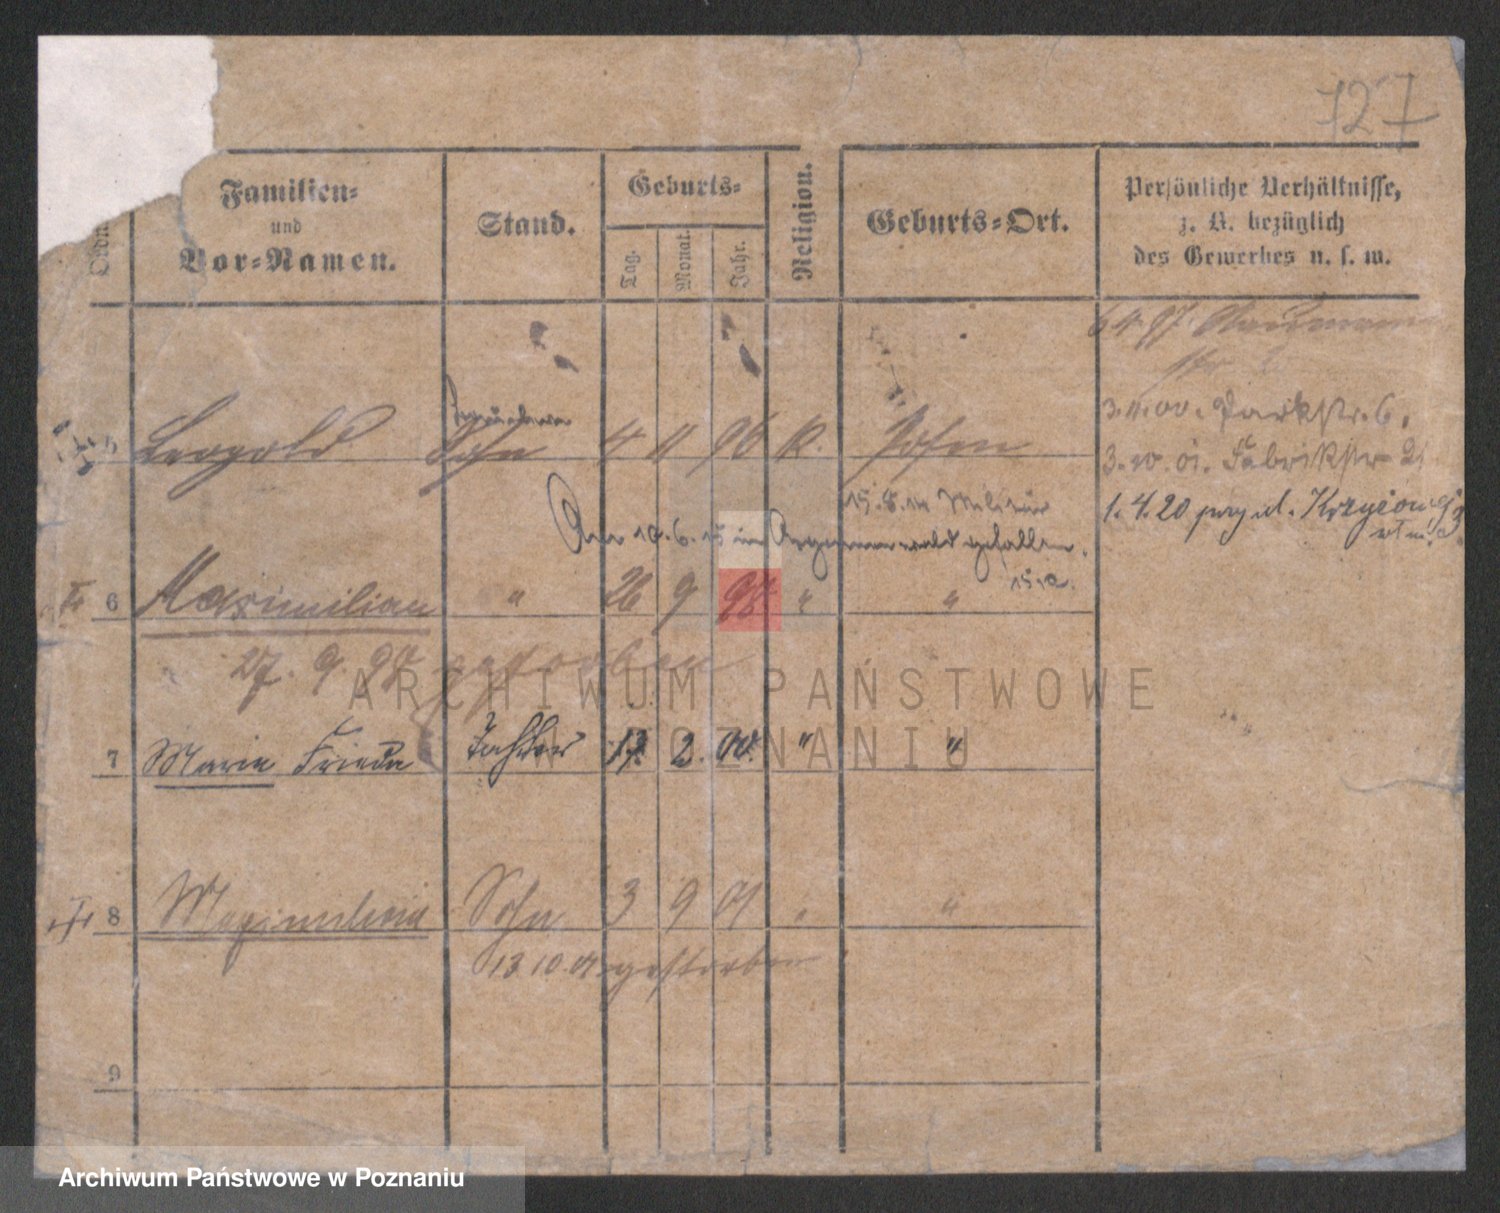 127
Ordn.
Familien=
und
Vor=Namen.
Stand.
Geburts=
Tag.
Monat.
Jahr.
Religion.
Geburts=Ort.
Persönliche Verhältnisse,
z. B. bezüglich
des Gewerbes u. s. w.
6 4 97.
3.4.00. Parkstr. 6.
3.10.01. Fabrikstr 21
1. 4. 20
Leopold Sohn 4 11 96 k. Posen
15. 8. 14 Militär
Am 10. 6. 15 im Argonnenwald gefallen.
6 Maximilian " 26 9 97 " "
27. 9. 97 gestorben
7 Marie Frieda Tochter 17. 2. 00. " "
8 Maximilian Sohn 3 9 01 " "
13. 10. 01 gestorben
9
ARCHIWUM PAŃSTWOWE
W POZNANIU
Archiwum Państwowe w Poznaniu